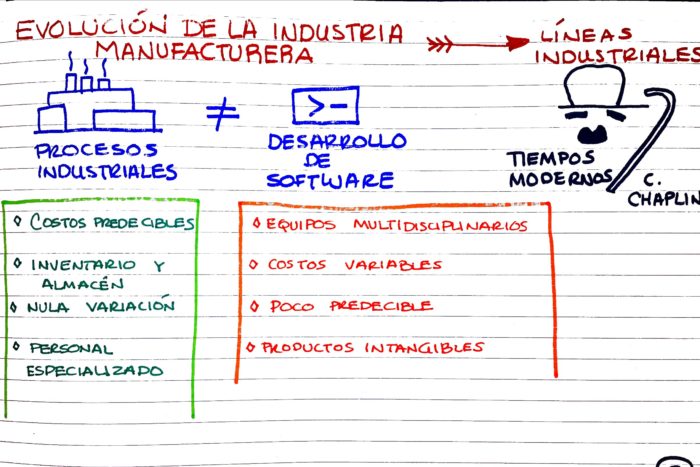 EVOLUCIÓN DE LA INDUSTRIA
MANUFACTURERA
LÍNEAS
INDUSTRIALES
PROCESOS
INDUSTRIALES
≠
>-
DESARROLLO
DE
SOFTWARE
TIEMPOS
MODERNOS
C.
CHAPLIN
COSTOS PREDECIBLES
INVENTARIO Y
ALMACÉN
NULA VARIACIÓN
PERSONAL
ESPECIALIZADO
EQUIPOS MULTIDISCIPLINARIOS
COSTOS VARIABLES
POCO PREDECIBLE
PRODUCTOS INTANGIBLES